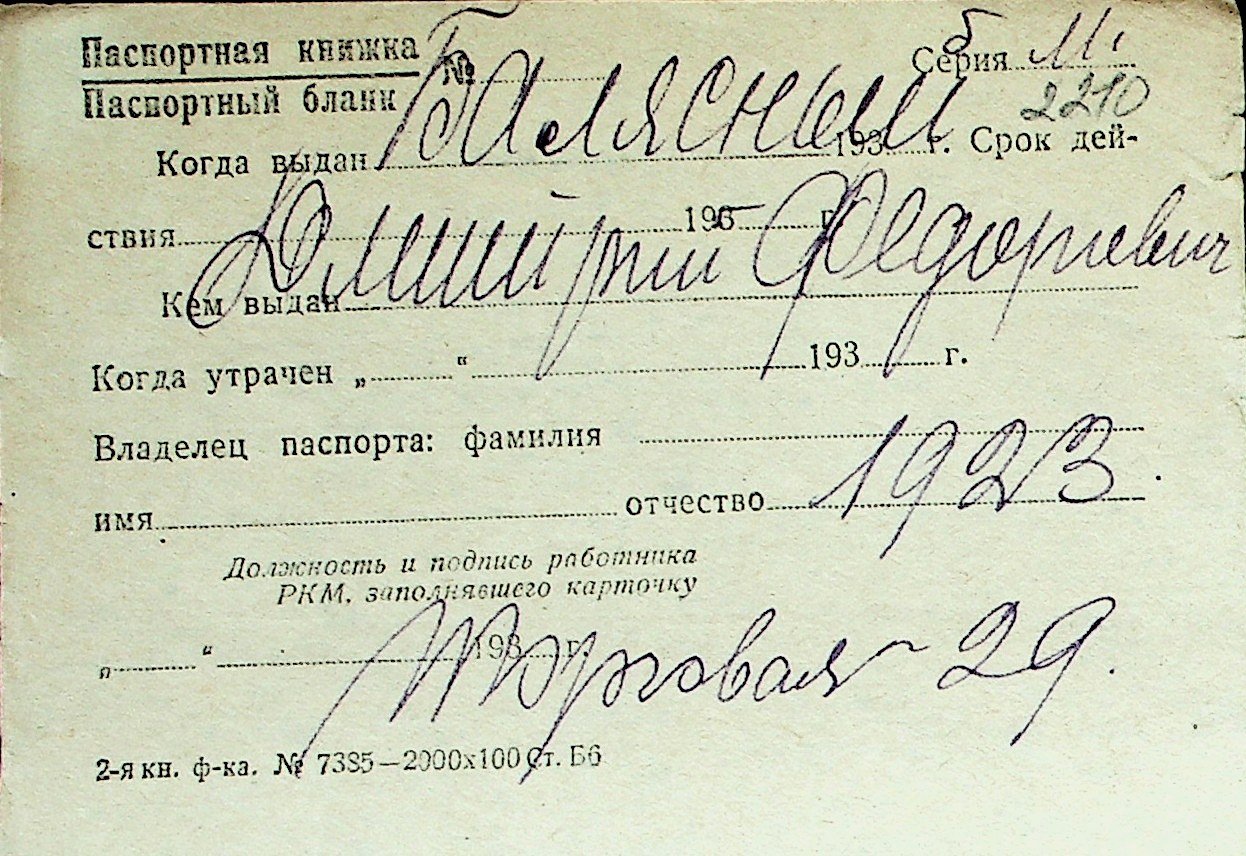 Паспортная книжка № Серия
Паспортный бланк 2210
Балясный
Когда выдан 193 г. Срок дей-
ствия 193 г.
Дмитрий Федорович
Кем выдан
Когда утрачен „ “ 193 г.
Владелец паспорта: фамилия
имя отчество 1923.
Должность и подпись работника
РКМ, заполнявшего карточку
„ “ 193 г.
Торговая 29.
2-я кн. ф-ка. № 7385—2000х100 Ст. Б6